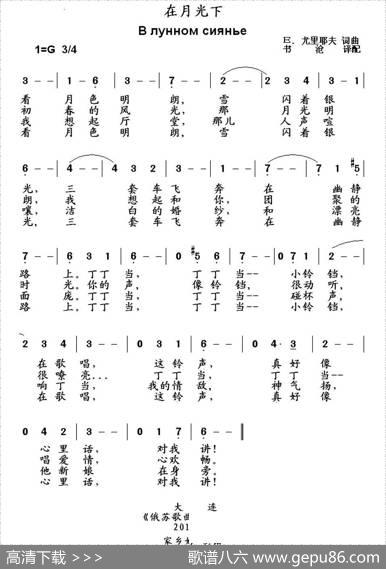 在月光下
В лунном сиянье
1=G 3/4
E. 尤里耶夫 词曲
书 沧 译配
3 - - 1 - 6 3 - 3 7 - - 2 - - 3 - 1
看 月 色 明 朗, 雪 闪 着 银
初 春 的 风 光, 那 月 光 明
我 想 起 厅 堂, 那儿 人 声 喧
看 月 色 明 朗, 雪 闪 着 银
6 - - 4 - - 4 3 2 3 - 4 7 - - 7 1 #5
光, 三 套 车 飞 奔 在 幽 静
朗, 我 想 起 和 你, 团 聚 的
嚷, 洁 白 的 婚 纱, 和 漂 亮
光, 三 套 车 飞 奔 在 幽 静
7 - - 6 3 1 6 - - 0 #5 6 7 - - 0 7 1 2 - -
路 上。丁 丁 当, 丁 丁 当-- 小 铃 铛,
时 光。你 的 声, 像 铃 铛, 很 动 听,
面 庞。丁 丁 当, 丁 丁 当-- 碰 杯 声,
路 上。丁 丁 当, 丁 丁 当-- 小 铃 铛,
2 3 4 3 - - 0 2 1 6 - - 0 4 3
在 歌 唱, 这 铃 声, 真 好 像
很 嘹 亮... 丁 丁 当, 丁 丁 当--
响 丁 当, 我的 情 敌, 神 气 扬,
在 歌 唱, 这 铃 声, 真 好 像
0 4 2 3 - - 0 1 7 6 - -
心 里 话, 对 我 讲!
唱 爱 情, 心 欢 畅。
他 新 娘 在 身 旁。
心 里 话, 对 我 讲!
大 连
《俄苏歌曲
201
家乡
高清下载 >>>
歌谱八六 www.gepu86.com